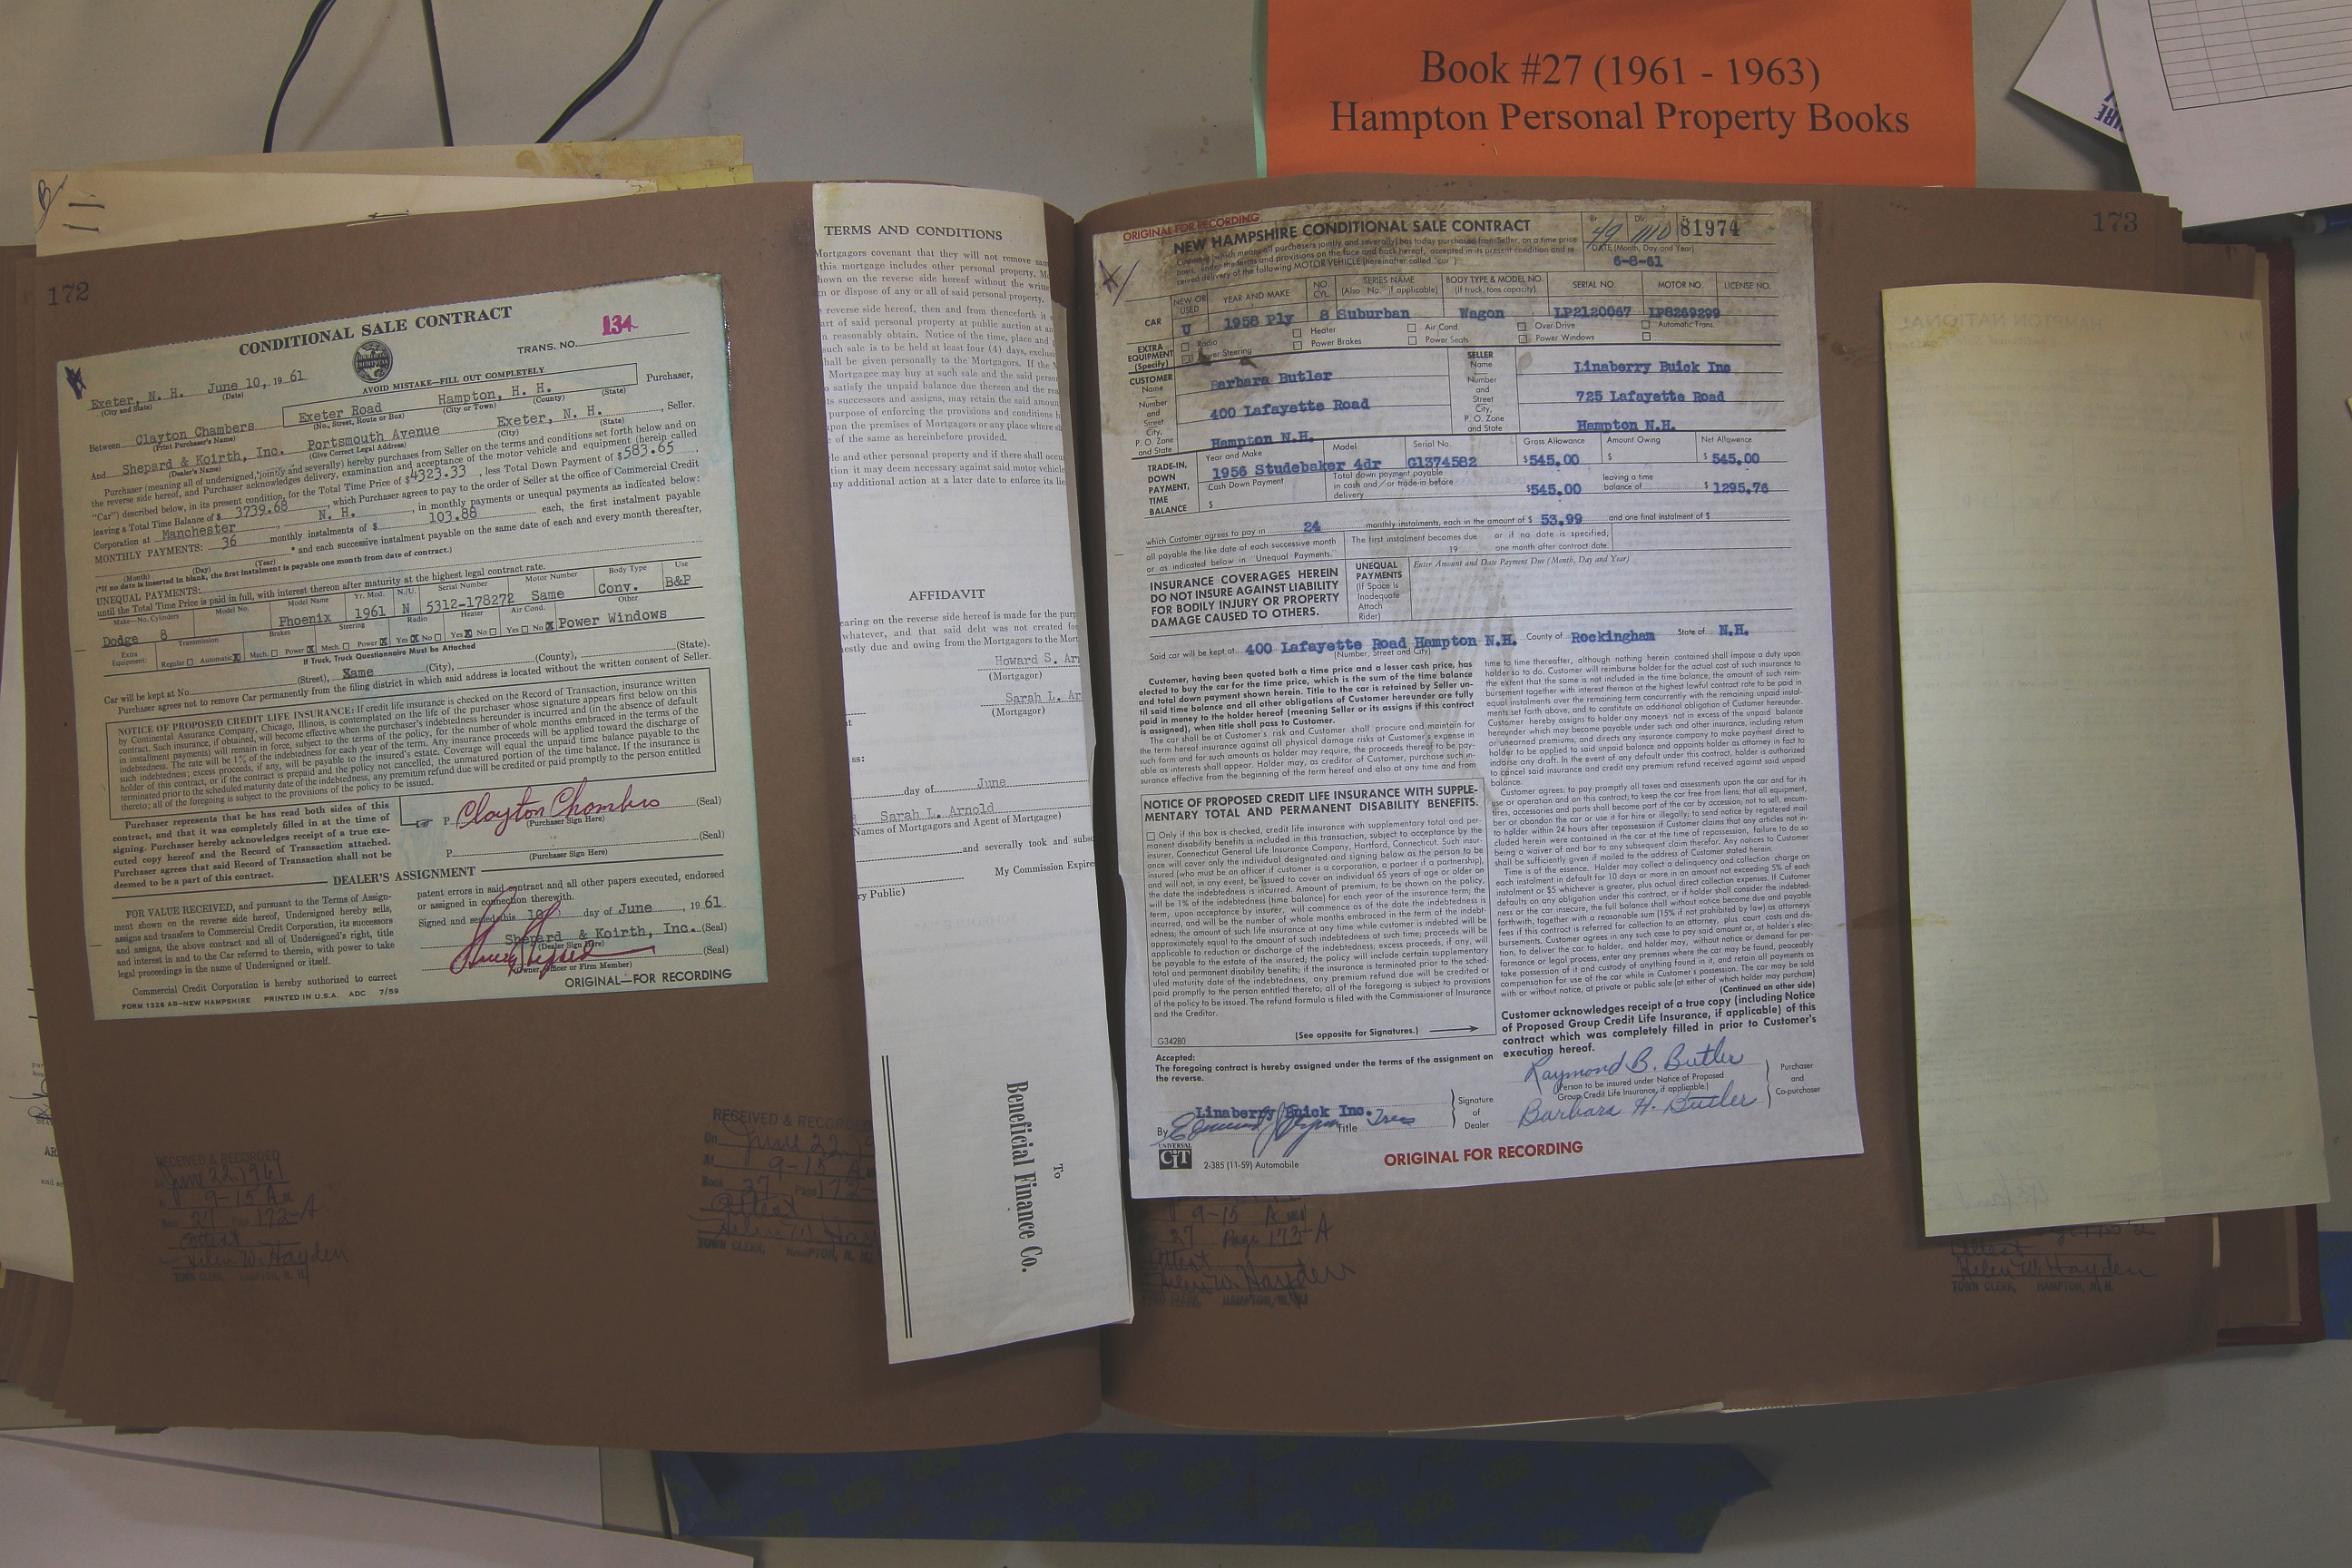 Book #27 (1961 - 1963)
Hampton Personal Property Books
172
CONDITIONAL SALE CONTRACT
134
TRANS. NO.
AVOID MISTAKE—FILL OUT COMPLETELY
Exeter, N. H. June 10, 19 61
(City and State) (Date)
Between Clayton Chambers Exeter Road Hampton, H. H. Purchaser,
(Print Purchaser's Name) (No., Street, Route or Box) (City or Town) (County) (State)
And Shepard & Koirth, Inc. Portsmouth Avenue Exeter, N. H. , Seller.
(Dealer's Name) (Give Correct Legal Address) (City) (State)
Purchaser (meaning all of undersigned, jointly and severally) hereby purchases from Seller on the terms and conditions set forth below and on
the reverse side hereof, and Purchaser acknowledges delivery, examination and acceptance of the motor vehicle and equipment (herein called
"Car") described below, in its present condition, for the Total Time Price of $4323.33 , less Total Down Payment of $583.65 ,
leaving a Total Time Balance of $ 3739.68 , which Purchaser agrees to pay to the order of Seller at the office of Commercial Credit
Corporation at Manchester , N. H. , in monthly payments or unequal payments as indicated below:
MONTHLY PAYMENTS: 36 monthly instalments of $ 103.88 each, the first instalment payable
* and each successive instalment payable on the same date of each and every month thereafter,
(Month) (Day) (Year)
(*If no date is inserted in blank, the first instalment is payable one month from date of contract.)
UNEQUAL PAYMENTS:
until the Total Time Price is paid in full, with interest thereon after maturity at the highest legal contract rate.
Make—No. Cylinders Model No. Model Name Yr. Mod. N./U. Serial Number Motor Number Body Type Use
Dodge 8 Phoenix 1961 N 5312-178272 Same Conv. B&P
Extra Equipment: Transmission Brakes Steering Radio Heater Air Cond. Other
Regular Automatic X Mech. Power X Mech. Power X Yes X No Yes X No Yes No X Power Windows
If Truck, Truck Questionnaire Must be Attached
Car will be kept at No. (Street), Xame (City), (County), (State).
Purchaser agrees not to remove Car permanently from the filing district in which said address is located without the written consent of Seller.
NOTICE OF PROPOSED CREDIT LIFE INSURANCE: If credit life insurance is checked on the Record of Transaction, insurance written
by Continental Assurance Company, Chicago, Illinois, is contemplated on the life of the purchaser whose signature appears first below on this
contract. Such insurance, if obtained, will become effective when the purchaser's indebtedness hereunder is incurred and (in the absence of default
in installment payments) will remain in force, subject to the terms of the policy, for the number of whole months embraced in the terms of the
indebtedness. The rate will be 1% of the indebtedness for each year of the term. Any insurance proceeds will be applied toward the discharge of
such indebtedness; excess proceeds, if any, will be payable to the insured's estate. Coverage will equal the unpaid time balance payable to the
holder of this contract, or if the contract is prepaid and the policy not cancelled, the unmatured portion of the time balance. If the insurance is
terminated prior to the scheduled maturity date of the indebtedness, any premium refund due will be credited or paid promptly to the person entitled
thereto; all of the foregoing is subject to the provisions of the policy to be issued.
Purchaser represents that he has read both sides of this
contract, and that it was completely filled in at the time of
signing. Purchaser hereby acknowledges receipt of a true exe-
cuted copy hereof and the Record of Transaction attached.
Purchaser agrees that said Record of Transaction shall not be
deemed to be a part of this contract.
P. Clayton Chambers (Seal)
(Purchaser Sign Here)
P. (Seal)
(Purchaser Sign Here)
DEALER'S ASSIGNMENT
FOR VALUE RECEIVED, and pursuant to the Terms of Assign-
ment shown on the reverse side hereof, Undersigned hereby sells,
assigns and transfers to Commercial Credit Corporation, its successors
and assigns, the above contract and all of Undersigned's right, title
and interest in and to the Car referred to therein, with power to take
legal proceedings in the name of Undersigned or itself.
Commercial Credit Corporation is hereby authorized to correct
patent errors in said contract and all other papers executed, endorsed
or assigned in connection therewith.
Signed and sealed this 10 day of June , 19 61
Shepard & Koirth, Inc. (Seal)
(Dealer Sign Here)
(Seal)
(Owner, Officer or Firm Member)
FORM 1326 AB—NEW HAMPSHIRE PRINTED IN U.S.A. ADC 7/59
ORIGINAL—FOR RECORDING
RECEIVED & RECORDED
June 22, 1961
9-15 AM
27 172-A
Attest
Helen W. Hayden
TOWN CLERK, HAMPTON, N. H.
RECEIVED & RECORDED
On June 22, 19
At 9-15 AM
Book 27 Page 172-
Attest
Helen W. Hay
TOWN CLERK, HAMPTON, N. H.
TERMS AND CONDITIONS
Mortgagors covenant that they will not remove
this mortgage includes other personal property,
hown on the reverse side hereof without the
n or dispose of any or all of said personal property.
reverse side hereof, then and from thenceforth it
art of said personal property at public auction at
n reasonably obtain. Notice of the time, place and
such sale is to be held at least four (4) days,
hall be given personally to the Mortgagors. If the
Mortgagee may buy at such sale and the said
o satisfy the unpaid balance due thereon and the
ts successors and assigns, may retain the said
purpose of enforcing the provisions and conditions
upon the premises of Mortgagors or any place where
e of the same as hereinbefore provided.
le and other personal property and if there shall
tion it may deem necessary against said motor
ny additional action at a later date to enforce its
AFFIDAVIT
earing on the reverse side hereof is made for the
whatever, and that said debt was not created
estly due and owing from the Mortgagors to the
Howard S. Ar
(Mortgagor)
Sarah L. Ar
(Mortgagor)
ss:
day of June
Sarah L. Arnold
Names of Mortgagors and Agent of Mortgagee)
and severally took and
My Commission Expire
ry Public)
To
Beneficial Finance Co.
173
ORIGINAL FOR RECORDING
NEW HAMPSHIRE CONDITIONAL SALE CONTRACT
Br. 49 Dlr. 81974
Customer (which means all purchasers jointly and severally) has today purchased from Seller, on a time price
basis, under the terms and provisions on the face and back hereof, accepted in its present condition and re-
ceived delivery of the following MOTOR VEHICLE (hereinafter called "car")
DATE (Month, Day and Year)
6-8-61
CAR NEW OR USED YEAR AND MAKE NO. CYL. SERIES NAME (Also No. if applicable) BODY TYPE & MODEL NO. (If truck, tons capacity) SERIAL NO. MOTOR NO. LICENSE NO.
U 1958 Ply 8 Suburban Wagon LP2120067 LP8269299
EXTRA EQUIPMENT (Specify) Radio Heater Air Cond. Over-Drive Automatic Trans.
Power Steering Power Brakes Power Seats Power Windows
CUSTOMER Name Barbara Butler
Number and Street 400 Lafayette Road
City, P. O. Zone and State Hampton N.H.
SELLER Name Linaberry Buick Inc
Number and Street 725 Lafayette Road
City, P. O. Zone and State Hampton N.H.
TRADE-IN, DOWN PAYMENT, TIME BALANCE
Year and Make Model Serial No. Gross Allowance Amount Owing Net Allowance
1956 Studebaker 4dr G1374582 $545.00 $ $ 545.00
Cash Down Payment $ Total down payment payable in cash and/or trade-in before delivery $545.00 leaving a time balance of $ 1295.76
which Customer agrees to pay in 24 monthly instalments, each in the amount of $ 53.99 and one final instalment of $
all payable the like date of each successive month
or as indicated below in "Unequal Payments."
The first instalment becomes due 19 or if no date is specified, one month after contract date.
INSURANCE COVERAGES HEREIN
DO NOT INSURE AGAINST LIABILITY
FOR BODILY INJURY OR PROPERTY
DAMAGE CAUSED TO OTHERS.
UNEQUAL PAYMENTS (If Space Is Inadequate Attach Rider)
Enter Amount and Date Payment Due (Month, Day and Year)
Said car will be kept at 400 Lafayette Road Hampton N.H. County of Rockingham State of N.H.
(Number, Street and City)
Customer, having been quoted both a time price and a lesser cash price, has
elected to buy the car for the time price, which is the sum of the time balance
and total down payment shown herein. Title to the car is retained by Seller un-
til said time balance and all other obligations of Customer hereunder are fully
paid in money to the holder hereof (meaning Seller or its assigns if this contract
is assigned), when title shall pass to Customer.
The car shall be at Customer's risk and Customer shall procure and maintain for
the term hereof insurance against all physical damage risks at Customer's expense in
such form and for such amounts as holder may require, the proceeds thereof to be pay-
able as interests shall appear. Holder may, as creditor of Customer, purchase such in-
surance effective from the beginning of the term hereof and also at any time and from
NOTICE OF PROPOSED CREDIT LIFE INSURANCE WITH SUPPLE-
MENTARY TOTAL AND PERMANENT DISABILITY BENEFITS.
Only if this box is checked, credit life insurance with supplemental total and per-
manent disability benefits is included in this transaction, subject to acceptance by the
insurer, Connecticut General Life Insurance Company, Hartford, Connecticut. Such insur-
ance will cover only the individual designated and signing below as the person to be
insured (who must be an officer if customer is a corporation, a partner if a partnership),
and will not, in any event, be issued to cover an individual 65 years of age or older on
the date the indebtedness is incurred. Amount of premium, to be shown on the policy,
will be 1% of the indebtedness (time balance) for each year of the insurance term; the
term, upon acceptance by insurer, will commence as of the date the indebtedness is
incurred, and will be the number of whole months embraced in the term of the indebt-
edness; the amount of such life insurance at any time while customer is indebted will be
approximately equal to the amount of such indebtedness at such time; proceeds will be
applicable to reduction or discharge of the indebtedness; excess proceeds, if any, will
be payable to the estate of the insured; the policy will include certain supplementary
total and permanent disability benefits; if the insurance is terminated prior to the sched-
uled maturity date of the indebtedness, any premium refund due will be credited or
paid promptly to the person entitled thereto; all of the foregoing is subject to provisions
of the policy to be issued. The refund formula is filed with the Commissioner of Insurance
and the Creditor.
(See opposite for Signatures.)
G34280
time to time thereafter, although nothing herein contained shall impose a duty upon
holder so to do. Customer will reimburse holder for the actual cost of such insurance to
the extent that the same is not included in the time balance, the amount of such reim-
bursement together with interest thereon at the highest lawful contract rate to be paid in
equal instalments over the remaining term concurrently with the remaining unpaid instal-
ments set forth above, and to constitute an additional obligation of Customer hereunder.
Customer hereby assigns to holder any moneys not in excess of the unpaid balance
hereunder which may become payable under such and other insurance, including return
or unearned premiums, and directs any insurance company to make payment direct to
holder to be applied to said unpaid balance and appoints holder as attorney in fact to
indorse any draft. In the event of any default under this contract, holder is authorized
to cancel said insurance and credit any premium refund received against said unpaid
balance.
Customer agrees: to pay promptly all taxes and assessments upon the car and for its
use or operation and on this contract; to keep the car free from liens; that all equipment,
tires, accessories and parts shall become part of the car by accession; not to sell, encum-
ber or abandon the car or use it for hire or illegally; to send notice by registered mail
to holder within 24 hours after repossession if Customer claims that any articles not in-
cluded herein were contained in the car at the time of repossession, failure to do so
being a waiver of and bar to any subsequent claim therefor. Any notices to Customer
shall be sufficiently given if mailed to the address of Customer stated herein.
Time is of the essence. Holder may collect a delinquency and collection charge on
each instalment in default for 10 days or more in an amount not exceeding 5% of each
instalment or $5 whichever is greater, plus actual direct collection expenses. If Customer
defaults on any obligation under this contract, or if holder shall consider the indebted-
ness or the car insecure, the full balance shall without notice become due and payable
forthwith, together with a reasonable sum (15% if not prohibited by law) as attorneys
fees if this contract is referred for collection to an attorney, plus court costs and dis-
bursements. Customer agrees in any such case to pay said amount or, at holder's elec-
tion, to deliver the car to holder, and holder may, without notice or demand for per-
formance or legal process, enter any premises where the car may be found, peaceably
take possession of it and custody of anything found in it, and retain all payments as
compensation for use of the car while in Customer's possession. The car may be sold
with or without notice, at private or public sale (at either of which holder may purchase)
(Continued on other side)
Customer acknowledges receipt of a true copy (including Notice
of Proposed Group Credit Life Insurance, if applicable) of this
contract which was completely filled in prior to Customer's
execution hereof.
Raymond B. Butler
(Person to be insured under Notice of Proposed
Group Credit Life Insurance, if applicable.)
Barbara H. Butler
Purchaser and Co-purchaser
Accepted:
The foregoing contract is hereby assigned under the terms of the assignment on
the reverse.
Linaberry Buick Inc.
By Title Tres
Signature of Dealer
UNIVERSAL
CIT
2-385 (11-59) Automobile
ORIGINAL FOR RECORDING
9-15 AM
27 Page 173-A
Attest
Helen W. Hayden
TOWN CLERK, HAMPTON, N. H.
Attest
Helen W. Hayden
TOWN CLERK, HAMPTON, N. H.